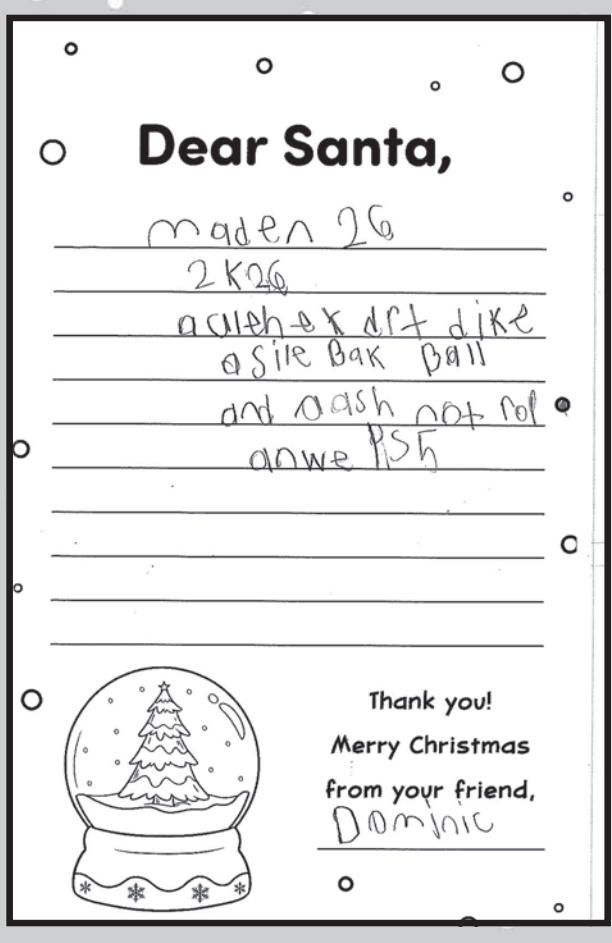 Dear Santa,
maden 26
2K26
a dike
a sile Bak Ball
and not rol
anwe PS5
Thank you!
Merry Christmas
from your friend,
Dominic